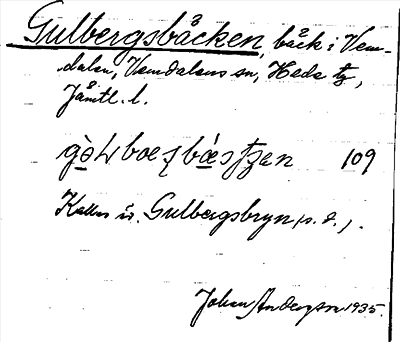 Gulbergsbäcken, bäck i Vem-
dalen, Vemdalens sn, Heds tg,
Jämtl. l.
109
Kallas Gulbergsbryn (s. d.).
Johan Anderson 1935.